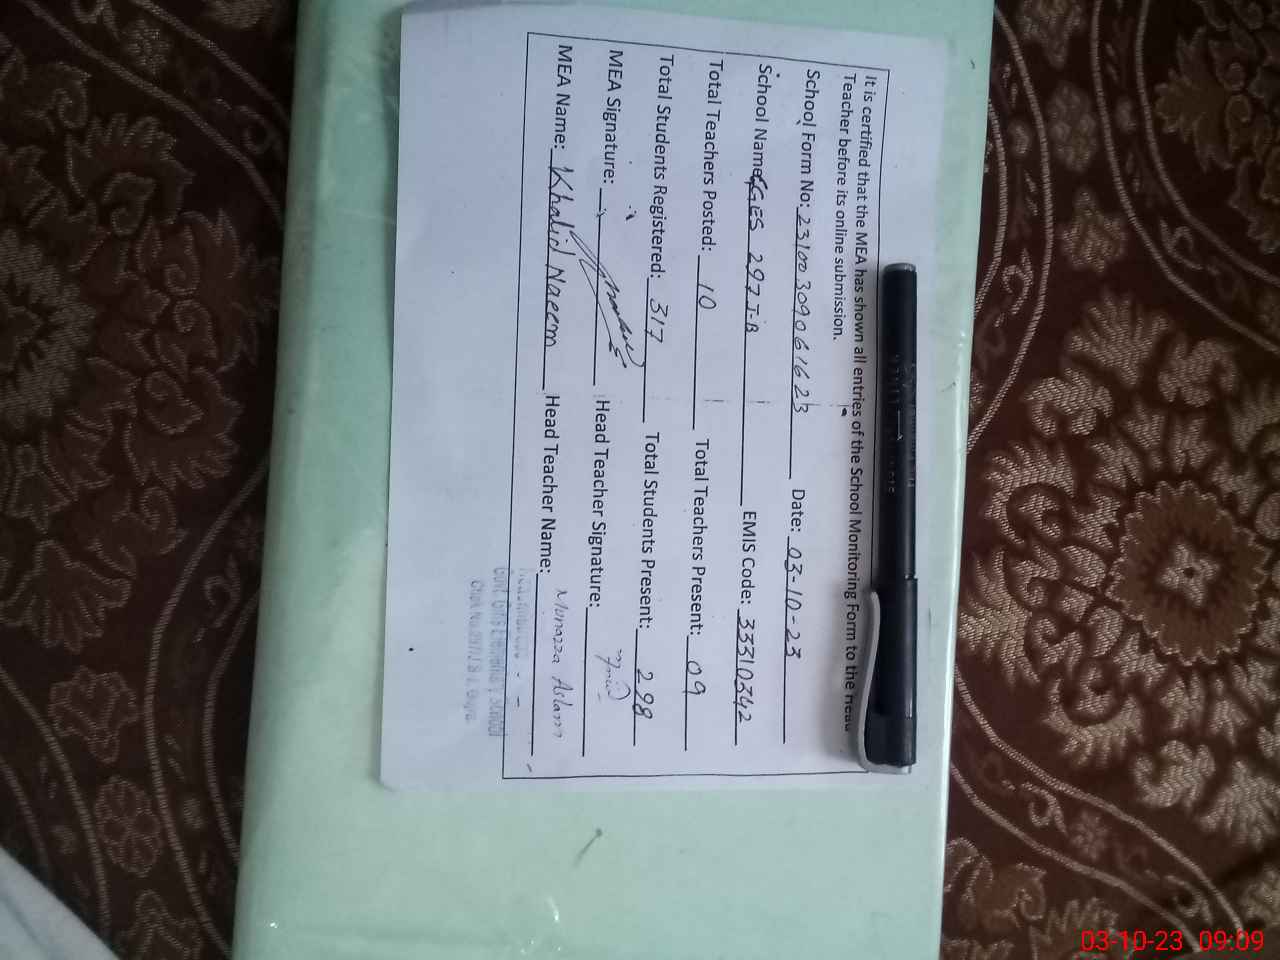 It is certified that the MEA has shown all entries of the School Monitoring Form to the Head
Teacher before its online submission.
School Form No: 23100309061623 Date: 03-10-23
School Name: GGES 297 J.B EMIS Code: 33310342
Total Teachers Posted: 10 Total Teachers Present: 09
Total Students Registered: 317 Total Students Present: 298
MEA Signature: Head Teacher Signature:
MEA Name: Khalid Naeem Head Teacher Name: Monazza Aslam
Headmistress
Govt. Girls Elementary School
Chak No.297/J.B
03-10-23 09:09